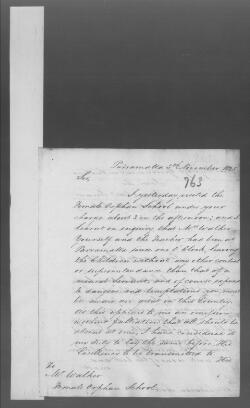 Parramatta 3rd November 1825
763
Sir,
I yesterday visited the
Female Orphan School under your
charge about 3 in the afternoon; and I
learnt on enquiry that Mrs Walker
Yourself and the Teacher had been at
Parramatta since one o'Clock, leaving
the Children without any other control
or superintendance than that of a
Servant, and of course exposed
to dangers and temptations you must
be aware are great in this Country.
As this appears to me an
without palliation that all should be
absent at once, I have considered it
my duty to lay the same before His
Excellency to be transmitted to the
To
Mr Walker
Female Orphan School